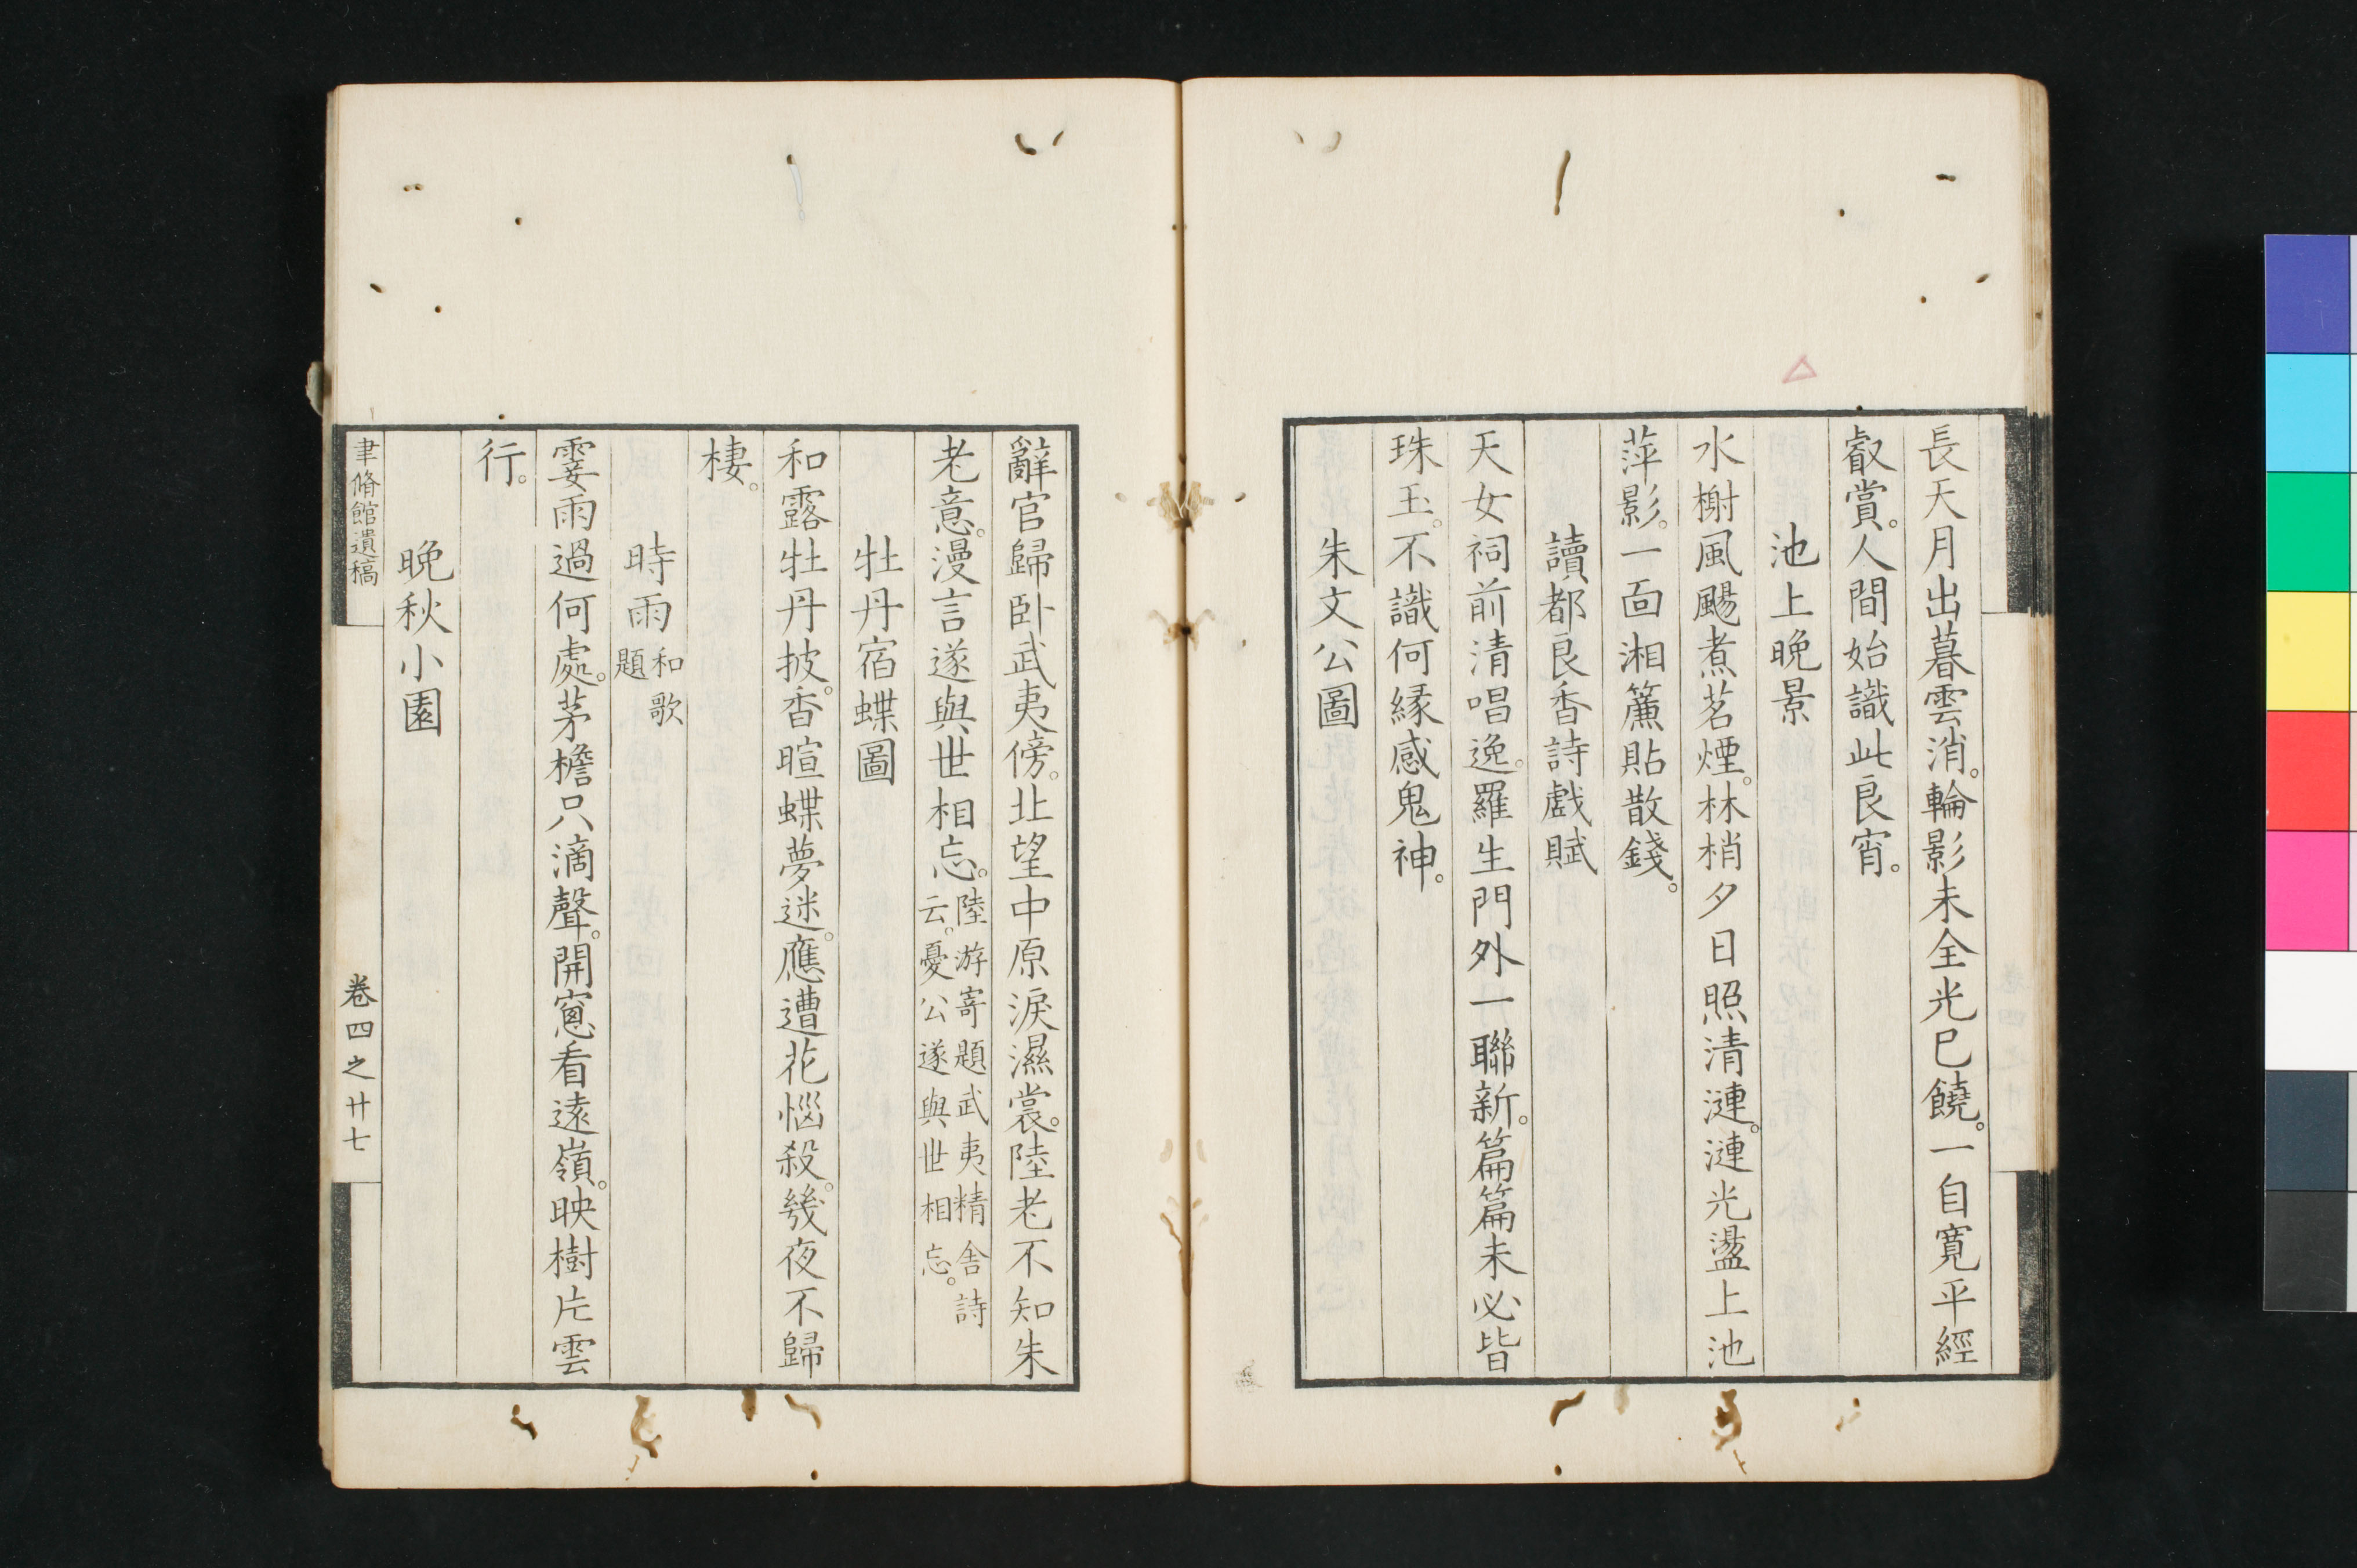 長天月出暮雲消。輪影未全光已饒。一自寬平經
叡賞。人間始識此良宵。
池上晩景
水榭風颺煮茗煙。林梢夕日照清漣。漣光盪上池
萍影。一面湘簾貼散錢。
讀都良香詩戲賦
天女祠前清唱逸。羅生門外一聯新。篇篇未必皆
珠玉。不識何縁感鬼神。
朱文公圖
辭官歸臥武夷傍。北望中原淚濕裳。陸老不知朱
老意。漫言遂與世相忘。陸游寄題武夷精舍詩
云。憂公遂與世相忘。
牡丹宿蝶圖
和露牡丹披。香暄蝶夢迷。應遭花惱殺。幾夜不歸
棲。
時雨和歌
題
霎雨過何處。茅檐只滴聲。開窻看遠嶺。映樹片雲
行。
晩秋小園
聿脩館遺稿
卷四之廿七